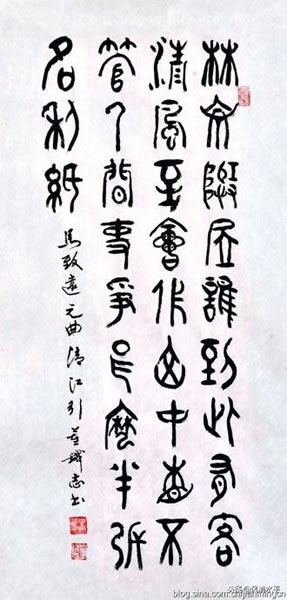 林泉隱居誰到此有客
清風至會作山中不
管人間事爭麼半張
名利紙
馬致遠元曲清江引
blog.sina.com.cn/jianmingcn